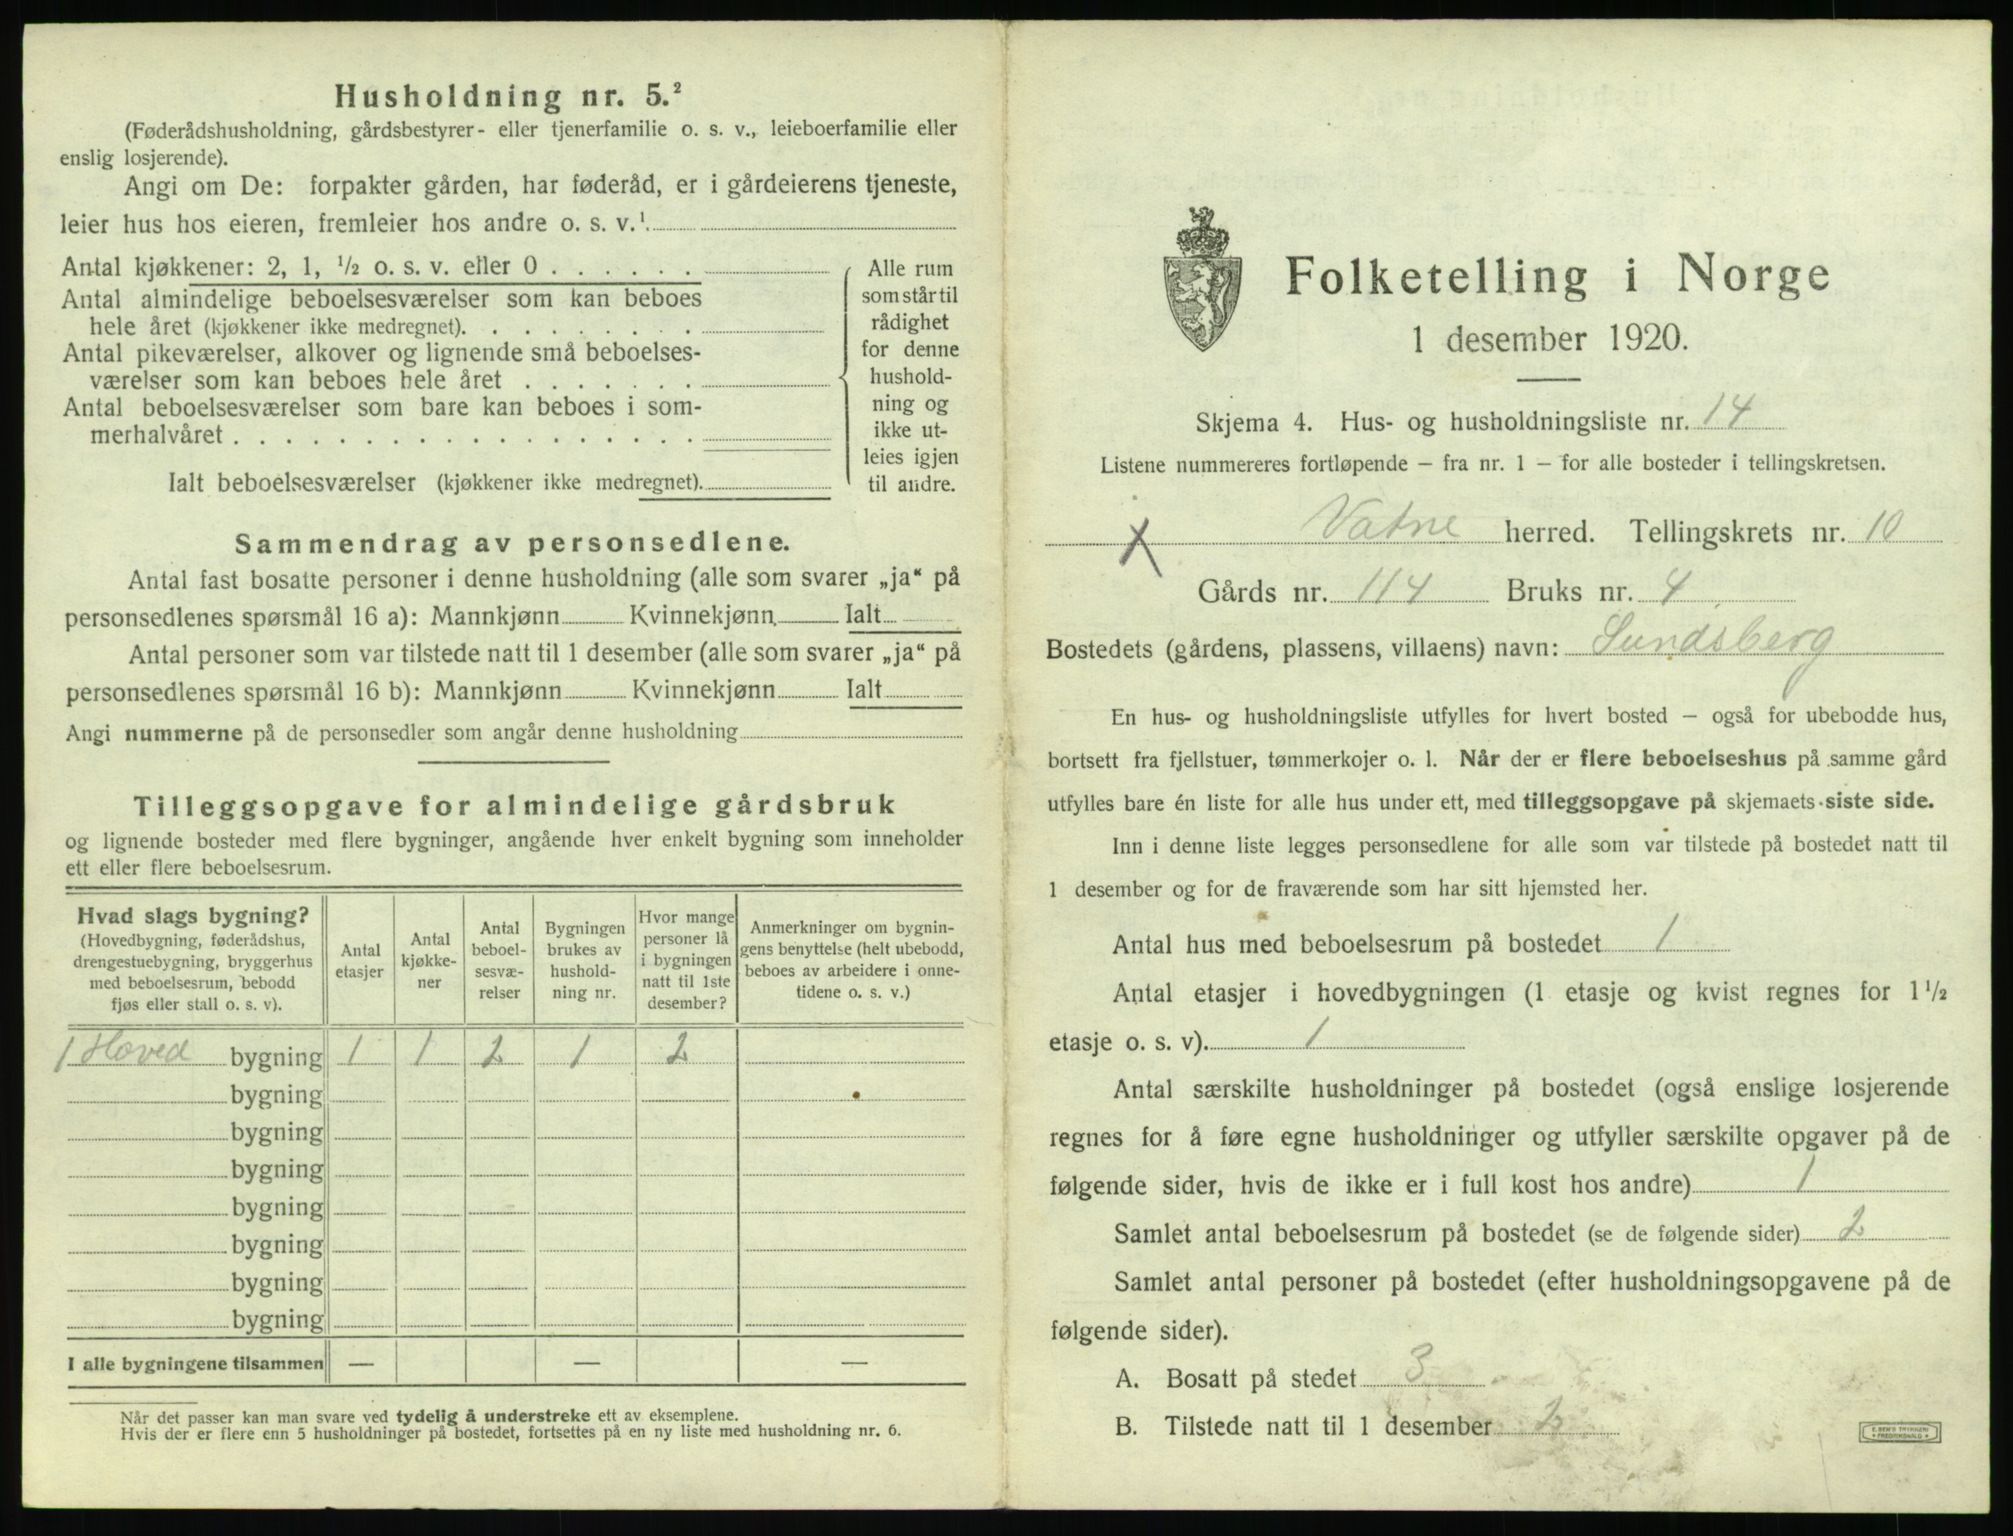 Husholdning nr. 5.²
(Føderådshusholdning, gårdsbestyrer- eller tjenerfamilie o. s. v., leieboerfamilie eller
enslig losjerende).
Angi om De: forpakter gården, har føderåd, er i gårdeierens tjeneste,
leier hus hos eieren, fremleier hos andre o. s. v.¹
Antal kjøkkener: 2, 1, ½ o. s. v. eller 0 . . . . . .
Antal almindelige beboelsesværelser som kan beboes
hele året (kjøkkener ikke medregnet). . . . . . . . .
Antal pikeværelser, alkover og lignende små beboelses-
værelser som kan beboes hele året . . . . . . .
Antal beboelsesværelser som bare kan beboes i som-
merhalvåret . . . . . . . . . . . . . . . . .
Ialt beboelsesværelser (kjøkkener ikke medregnet).
Alle rum
som står til
rådighet
for denne
hushold-
ning og
ikke ut-
leies igjen
til andre.
Sammendrag av personsedlene.
Antal fast bosatte personer i denne husholdning (alle som svarer „ja“ på
personsedlenes spørsmål 16 a): Mannkjønn Kvinnekjønn Ialt
Antal personer som var tilstede natt til 1 desember (alle som svarer „ja“ på
personsedlenes spørsmål 16 b): Mannkjønn Kvinnekjønn Ialt
Angi nummerne på de personsedler som angår denne husholdning
Tilleggsopgave for almindelige gårdsbruk
og lignende bosteder med flere bygninger, angående hver enkelt bygning som inneholder
ett eller flere beboelsesrum.
Hvad slags bygning?
(Hovedbygning, føderådshus,
drengestuebygning, bryggerhus
med beboelsesrum, bebodd
fjøs eller stall o. s. v).
Antal
etasjer
Antal
kjøkke-
ner
Antal
beboel-
sesvæ-
relser
Bygningen
brukes av
hushold-
ning nr.
Hvor mange
personer lå
i bygningen
natt til 1ste
desember?
Anmerkninger om bygnin-
gens benyttelse (helt ubebodd,
beboes av arbeidere i onne-
tidene o. s. v.)
1 Hoved bygning 1 1 2 1 2
bygning
bygning
bygning
bygning
bygning
bygning
bygning
I alle bygningene tilsammen — — —
Når det passer kan man svare ved tydelig å understreke ett av eksemplene.
Hvis der er flere enn 5 husholdninger på bostedet, fortsettes på en ny liste med husholdning nr. 6.
Folketelling i Norge
1 desember 1920.
Skjema 4. Hus- og husholdningsliste nr. 14
Listene nummereres fortløpende – fra nr. 1 – for alle bosteder i tellingskretsen.
X Vatne herred. Tellingskrets nr. 10
Gårds nr. 114 Bruks nr. 4
Bostedets (gårdens, plassens, villaens) navn: Sundsberg
En hus- og husholdningsliste utfylles for hvert bosted – også for ubebodde hus,
bortsett fra fjellstuer, tømmerkojer o. l. Når der er flere beboelseshus på samme gård
utfylles bare én liste for alle hus under ett, med tilleggsopgave på skjemaets siste side.
Inn i denne liste legges personsedlene for alle som var tilstede på bostedet natt til
1 desember og for de fraværende som har sitt hjemsted her.
Antal hus med beboelsesrum på bostedet 1
Antal etasjer i hovedbygningen (1 etasje og kvist regnes for 1½
etasje o. s. v). 1
Antal særskilte husholdninger på bostedet (også enslige losjerende
regnes for å føre egne husholdninger og utfyller særskilte opgaver på de
følgende sider, hvis de ikke er i full kost hos andre) 1
Samlet antal beboelsesrum på bostedet (se de følgende sider) 2
Samlet antal personer på bostedet (efter husholdningsopgavene på de
følgende sider).
A. Bosatt på stedet 3
B. Tilstede natt til 1 desember 2